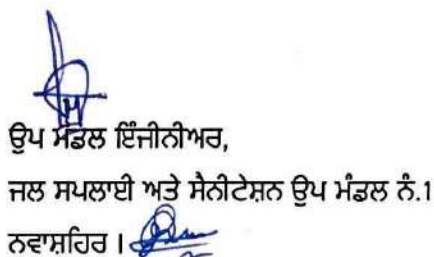 ਉਪ ਮੰਡਲ ਇੰਜੀਨੀਅਰ,
ਜਲ ਸਪਲਾਈ ਅਤੇ ਸੈਨੀਟੇਸ਼ਨ ਉਪ ਮੰਡਲ ਨੰ.1
ਨਵਾਂਸ਼ਹਿਰ ।